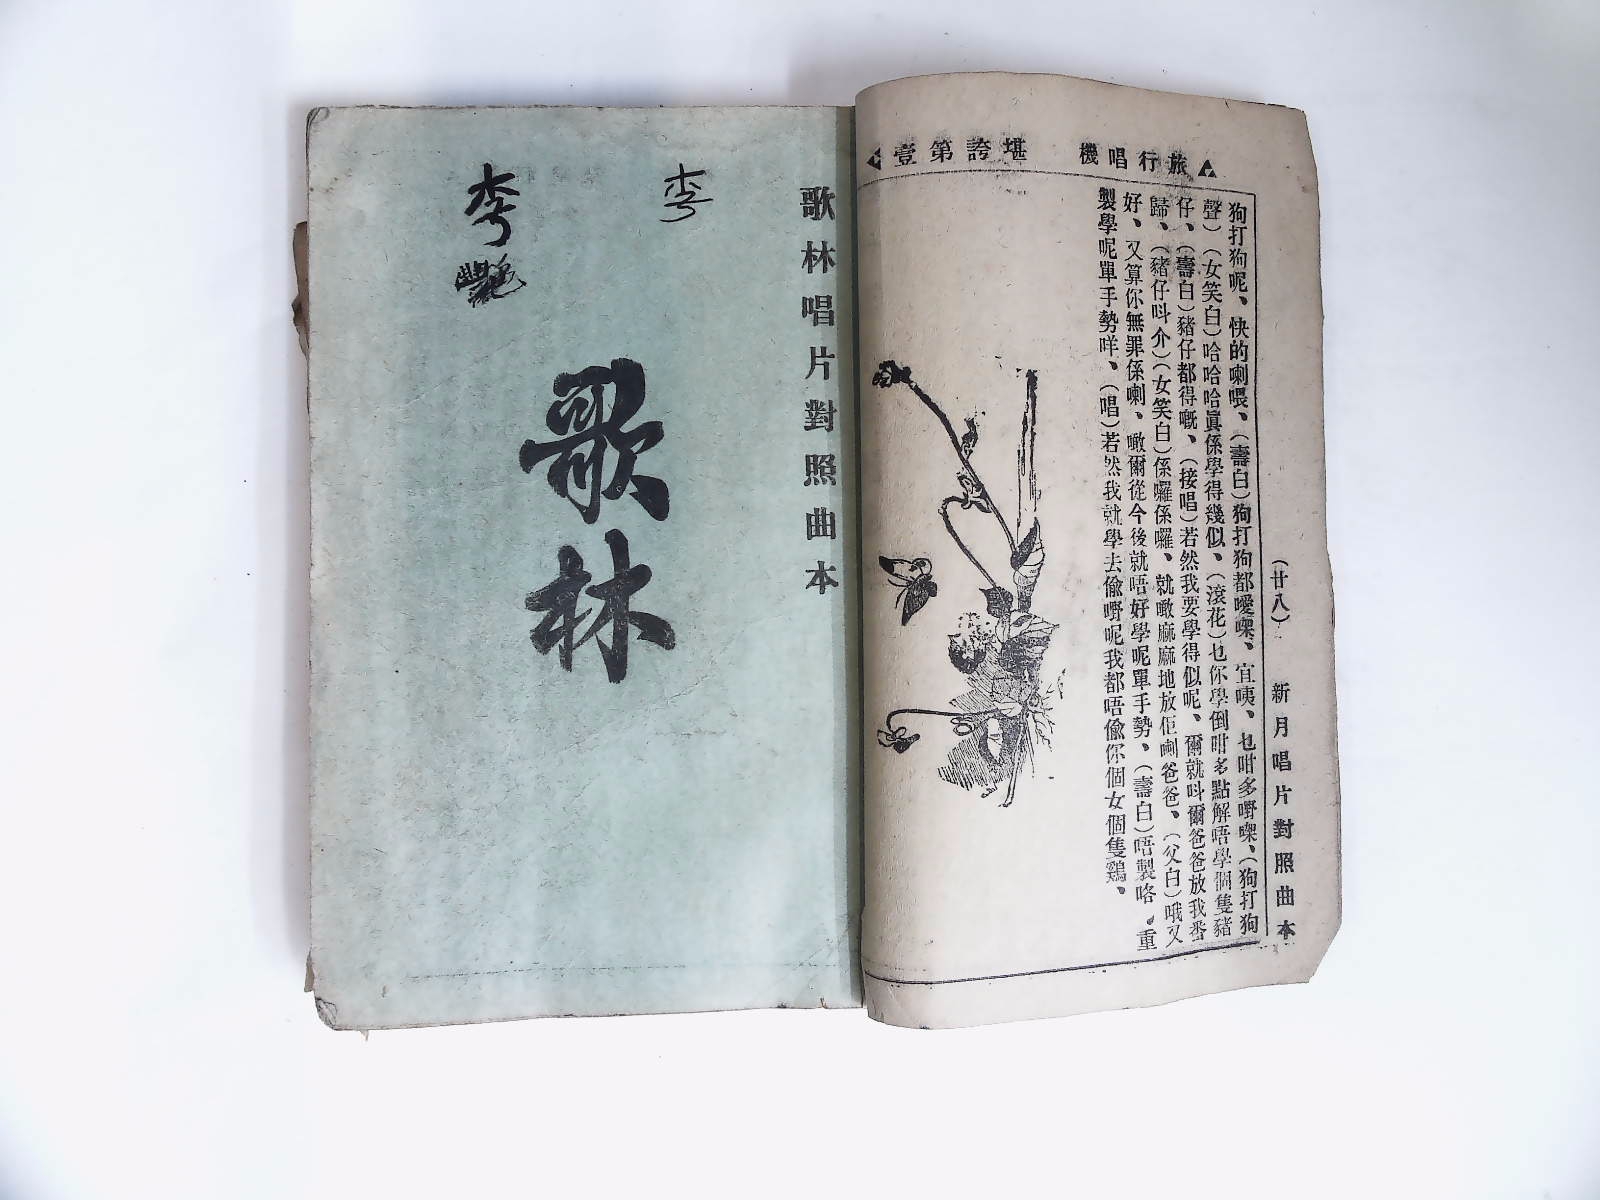 ▲旅行唱機　堪誇第壹▲
(廿八)　新月唱片對照曲本
狗打狗呢、快的喇喂、(壽白)狗打狗都噯㗎、宜咦、乜咁多嘢㗎、(狗打狗
聲)(女笑白)哈哈哈眞係學得幾似、(滾花)乜你學倒咁多點解唔學個隻豬
仔、(壽白)豬仔都得嘅、(接唱)若然我要學得似呢、爾就呌爾爸爸放我番
歸、(豬仔呌介)(女笑白)係囉係囉、就噉麻麻地放佢喇爸爸、(父白)哦又
好、又算你無罪係喇、噉爾從今後就唔好學呢單手勢、(壽白)唔製咯、重
製學呢單手勢咩、(唱)若然我就學去偸嘢呢我都唔偸你個女個隻鷄、
歌林唱片對照曲本
李
李艷
歌林